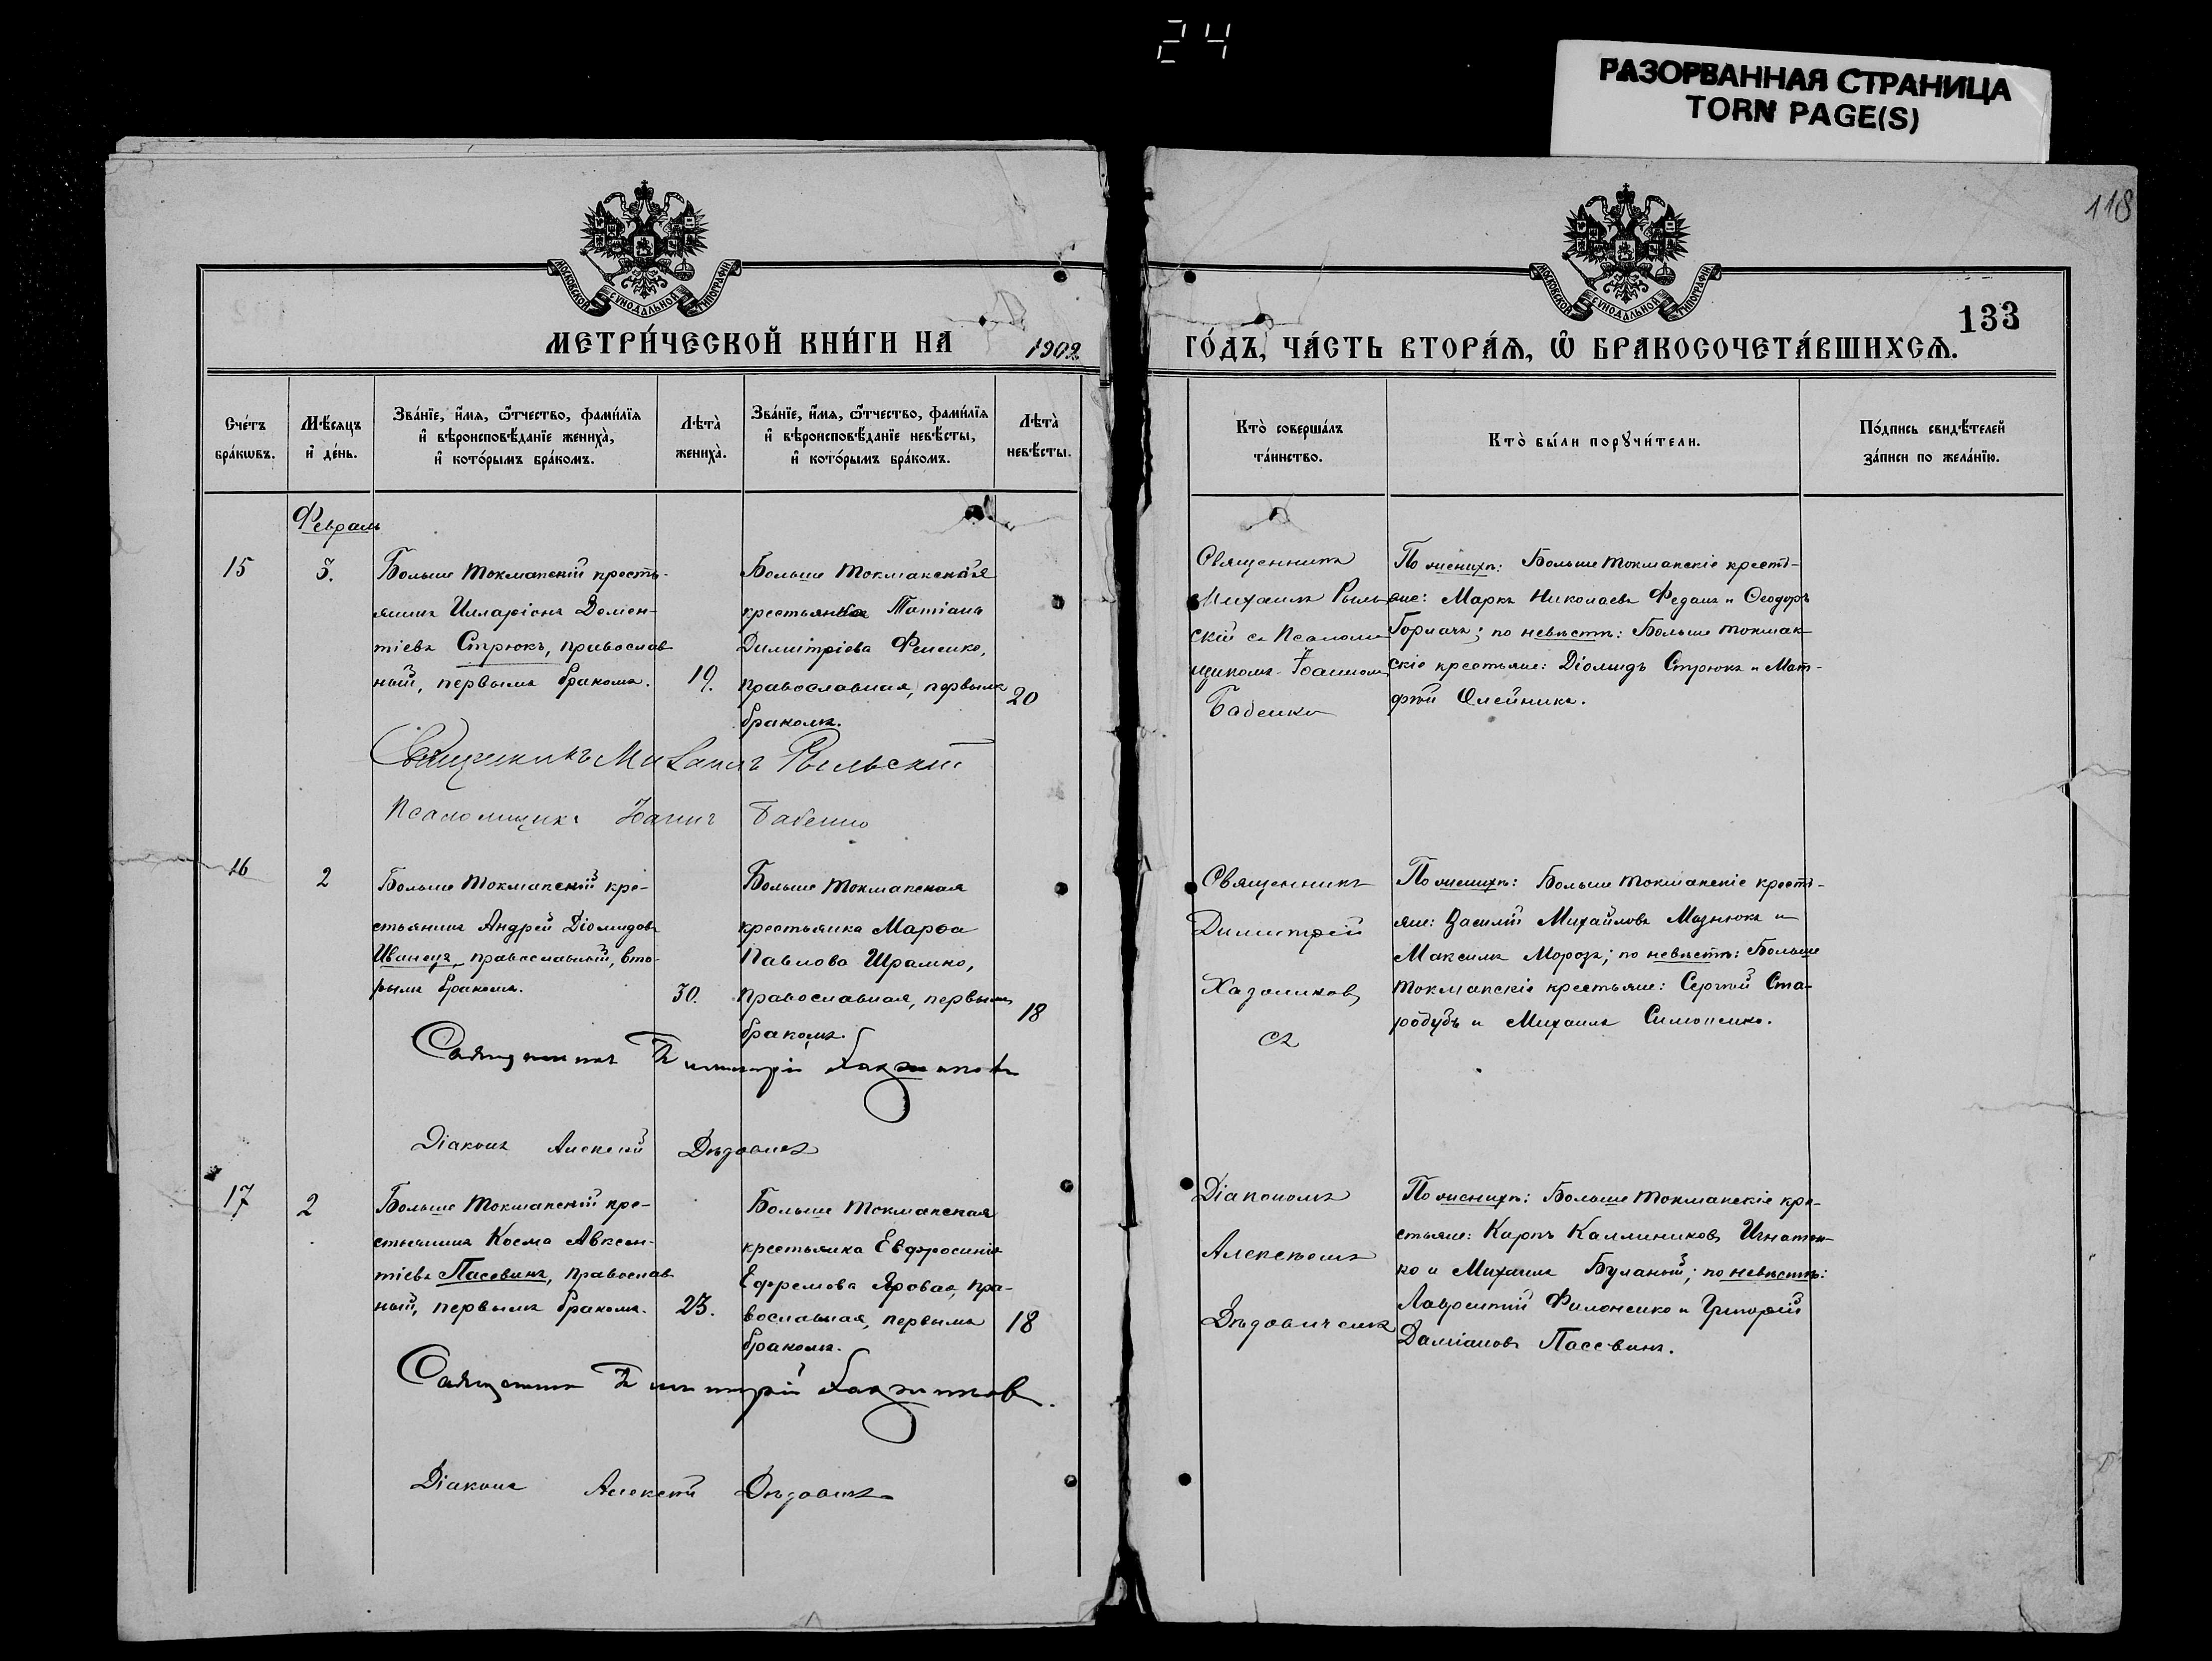 24
РАЗОРВАННАЯ СТРАНИЦА
TORN PAGE(S)
118
МОСКОВСКОЙ СѴНОДАЛЬНОЙ ТИПОГРАФІИ
МОСКОВСКОЙ СѴНОДАЛЬНОЙ ТИПОГРАФІИ
133
МЕТРИ́ЧЕСКОЙ КНИ́ГИ НА 1902 ГО́ДЪ, ЧА́СТЬ ВТОРА́Я, Ѡ҆ БРАКОСОЧЕТА́ВШИХСѦ.
Сче́тъ
бра́кѡвъ.
Мѣ́сяцъ
и҆ де́нь.
Зва́нїе, и҆́мя, ѻ҆́тчество, фами́лїя
и҆ вѣроисповѣ́данїе жениха̀,
и҆ кото́рымъ бра́комъ.
Лѣта̀
жениха̀.
Зва́нїе, и҆́мя, ѻ҆́тчество, фами́лїя
и҆ вѣроисповѣ́данїе невѣ́сты,
и҆ кото́рымъ бра́комъ.
Лѣта̀
невѣ́сты.
Кто̀ соверша́лъ
та́инство.
Кто̀ бы́ли порꙋчи́тели.
По́дпись свидѣ́телей
за́писи по жела́нїю.
Февраль
15
3.
Больше Токмакскій кресть-
янинъ Илларіонъ Домен-
тіевъ Стрюкъ, православ
ный, первымъ бракомъ.
19.
Больше Токмакская
крестьянка Татіана
Димитріева Фесенко,
православная, первымъ
бракомъ.
20
Священникъ
Михаилъ Рыль
скій съ Псалом
щикомъ Іоанномъ
Бабенко
По женихѣ: Больше Токмакскіе кресть-
яне: Маркъ Николаевъ Феданъ и Ѳеодоръ
Горпачъ; по невѣстѣ: Больше Токмак-
скіе крестьяне: Діомидъ Стрюкъ и Мат-
фѣй Олейникъ.
Священникъ Михаилъ Рыльскій
Псаломщикъ Іоаннъ Бабенко
16
2
Больше Токмакскій кре-
стьянинъ Андрей Діомидовъ
Иванецъ, православный, вто-
рымъ бракомъ.
30.
Больше Токмакская
крестьянка Марѳа
Павлова Шрамко,
православная, первымъ
бракомъ.
18
Священникъ
Димитрій
съ
По женихѣ: Больше Токмакскіе кресть-
яне: Василій Михайловъ Мазнюкъ и
Максимъ Морозъ; по невѣстѣ: Больше
Токмакскіе крестьяне: Сергѣй Ста-
родубъ и Михаилъ Симоненко.
Священникъ Димитрій
Діаконъ Алексѣй
17
2
Больше Токмакскій кре-
стьянинъ Косма Авксен-
тіевъ Пасевинъ, православ
ный, первымъ бракомъ.
23.
Больше Токмакская
крестьянка Евфросинія
Ефремова Яровая, пра-
вославная, первымъ
бракомъ.
18
Діакономъ
Алексѣемъ
По женихѣ: Больше Токмакскіе кре-
стьяне: Карпъ Каллиниковъ Игнатен-
ко и Михаилъ Буланый; по невѣстѣ:
Лаврентій Филоненко и Григорій
Даміановъ Пасевинъ.
Священникъ Димитрій
Діаконъ Алексѣй